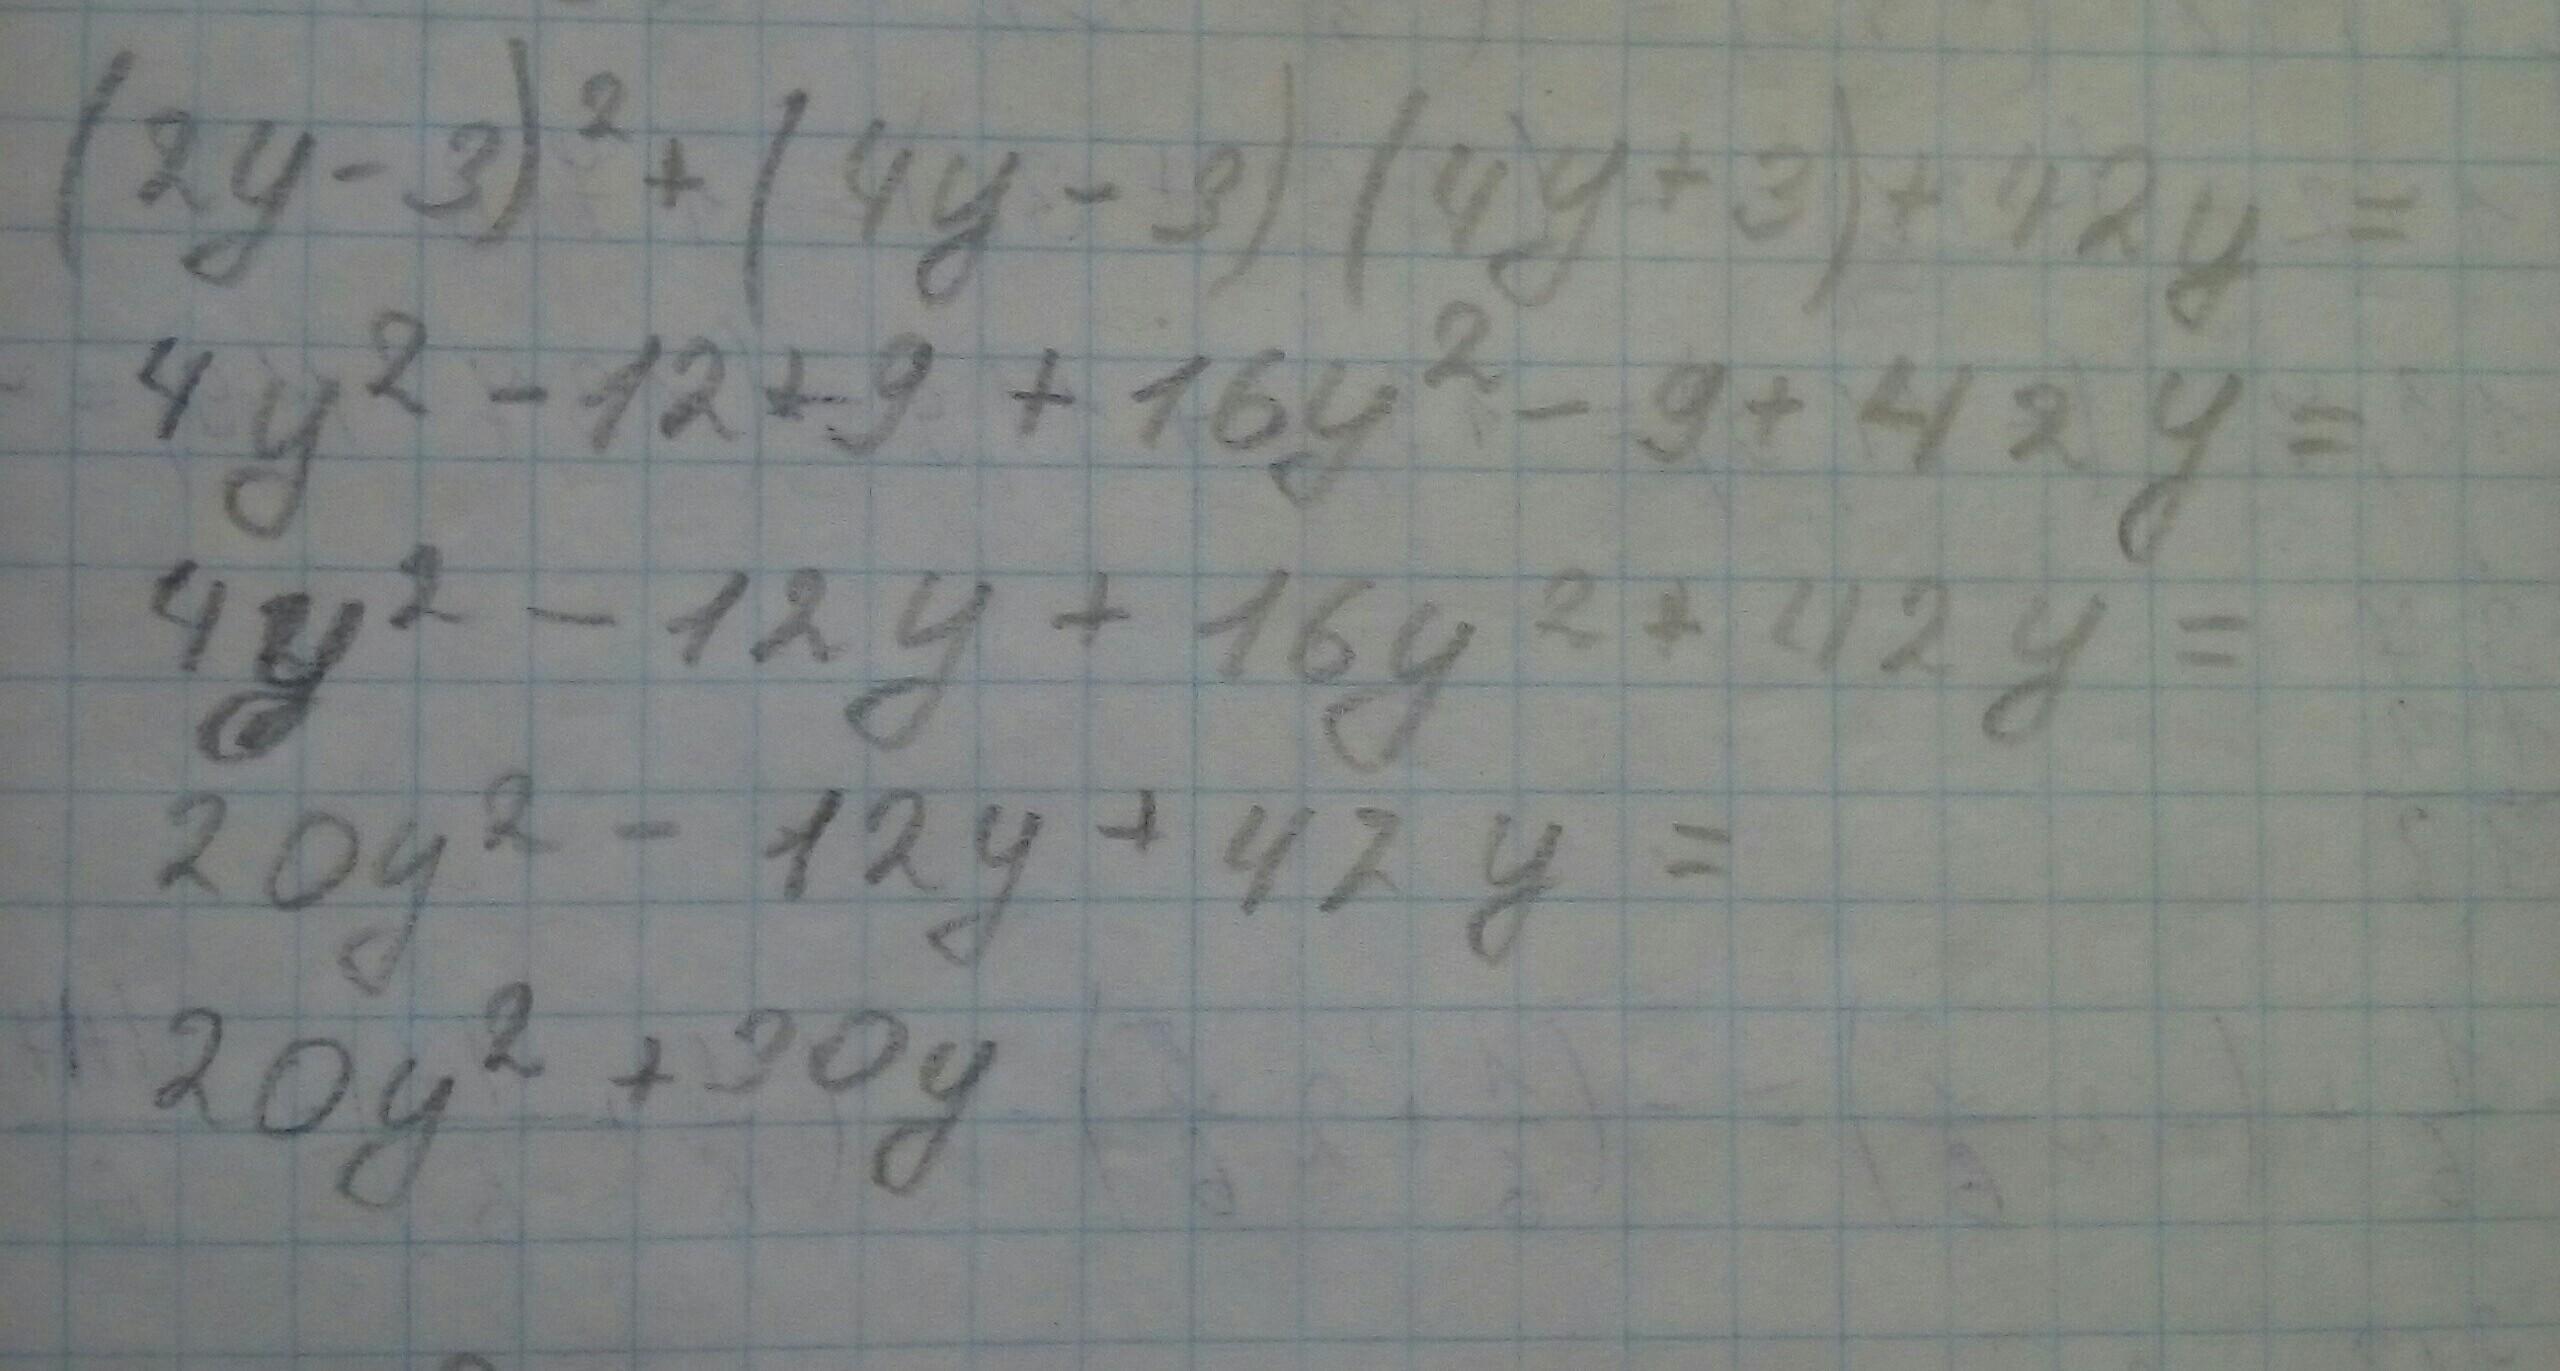 (2y-3)² + (4y-3)(4y+3)+42y=
4y² - 12 + 9 + 16y² - 9 + 42y =
4y² - 12y + 16y² + 42y =
20y² - 12y + 42y =
20y² + 30y